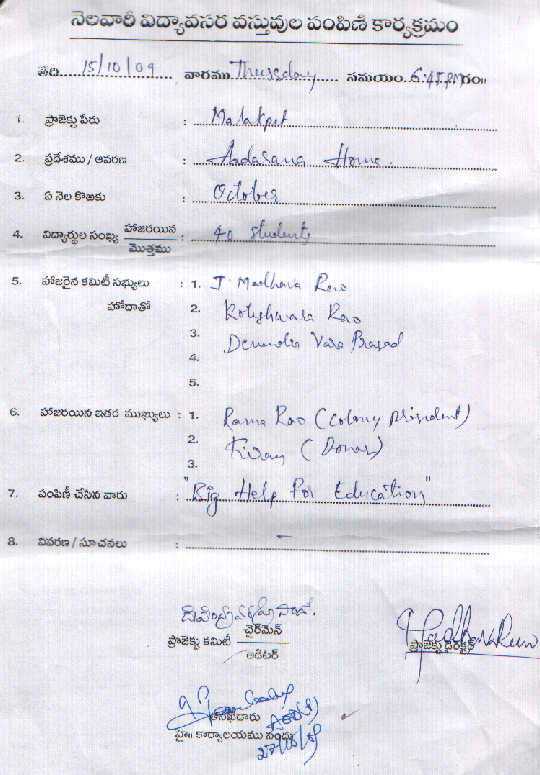 నెలవారీ విద్యావసర వస్తువుల పంపిణీ కార్యక్రమం
తేది..... 15/10/09 ..... వారము Thursday ..... సమయం. 6:45 PM గం॥
1. ప్రాజెక్టు పేరు : Malakpet
2. ప్రదేశము / ఆవరణ : Aadasana Home.
3. ఏ నెల కొఱకు : October
4. విద్యార్థుల సంఖ్య హాజరయిన / మొత్తము : 40 Students
5. హాజరైన కమిటీ సభ్యులు : 1. J. Madhava Rao
హోదాతో 2. Koteshwara Rao
3. Devendra Vara Prasad
4.
5.
6. హాజరయిన ఇతర ముఖ్యులు : 1. Rama Rao (Colony president)
2. Kiran (Donar)
3.
7. పంపిణీ చేసిన వారు : "Big Help For Education"
8. వివరణ / సూచనలు : –
చైర్‌మెన్
ప్రాజెక్టు కమిటీ
ఆడిటర్
ప్రాజెక్టు డైరెక్టర్
కార్యాలయము